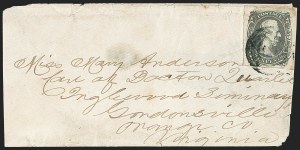 Miss Mary Anderson
Care of Doctor
Inglywood Siminary
Gordonsville
Orange Co
Virginia